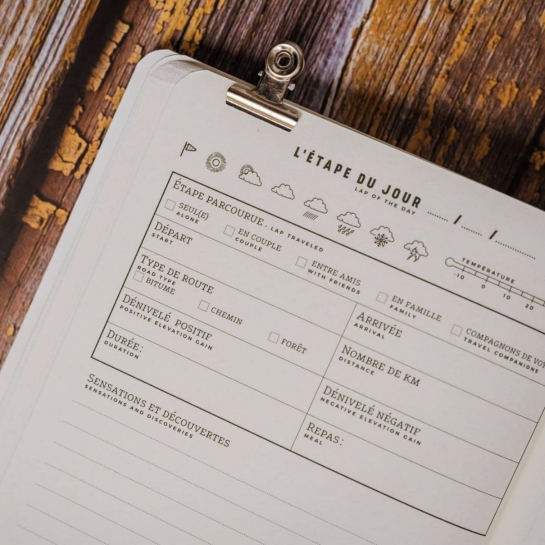 L'ÉTAPE DU JOUR
LAP OF THE DAY
/ /
TEMPÉRATURE
-10 0 10 20
ÉTAPE PARCOURUE - LAP TRAVELED
SEUL(E)
ALONE
EN COUPLE
COUPLE
ENTRE AMIS
WITH FRIENDS
EN FAMILLE
FAMILY
COMPAGNONS DE
TRAVEL COMPANIONS
DÉPART
START
ARRIVÉE
ARRIVAL
TYPE DE ROUTE
ROAD TYPE
BITUME
CHEMIN
FORÊT
NOMBRE DE KM
DISTANCE
DÉNIVELÉ POSITIF
POSITIVE ELEVATION GAIN
DÉNIVELÉ NÉGATIF
NEGATIVE ELEVATION GAIN
DURÉE:
DURATION
REPAS:
MEAL
SENSATIONS ET DÉCOUVERTES
SENSATIONS AND DISCOVERIES